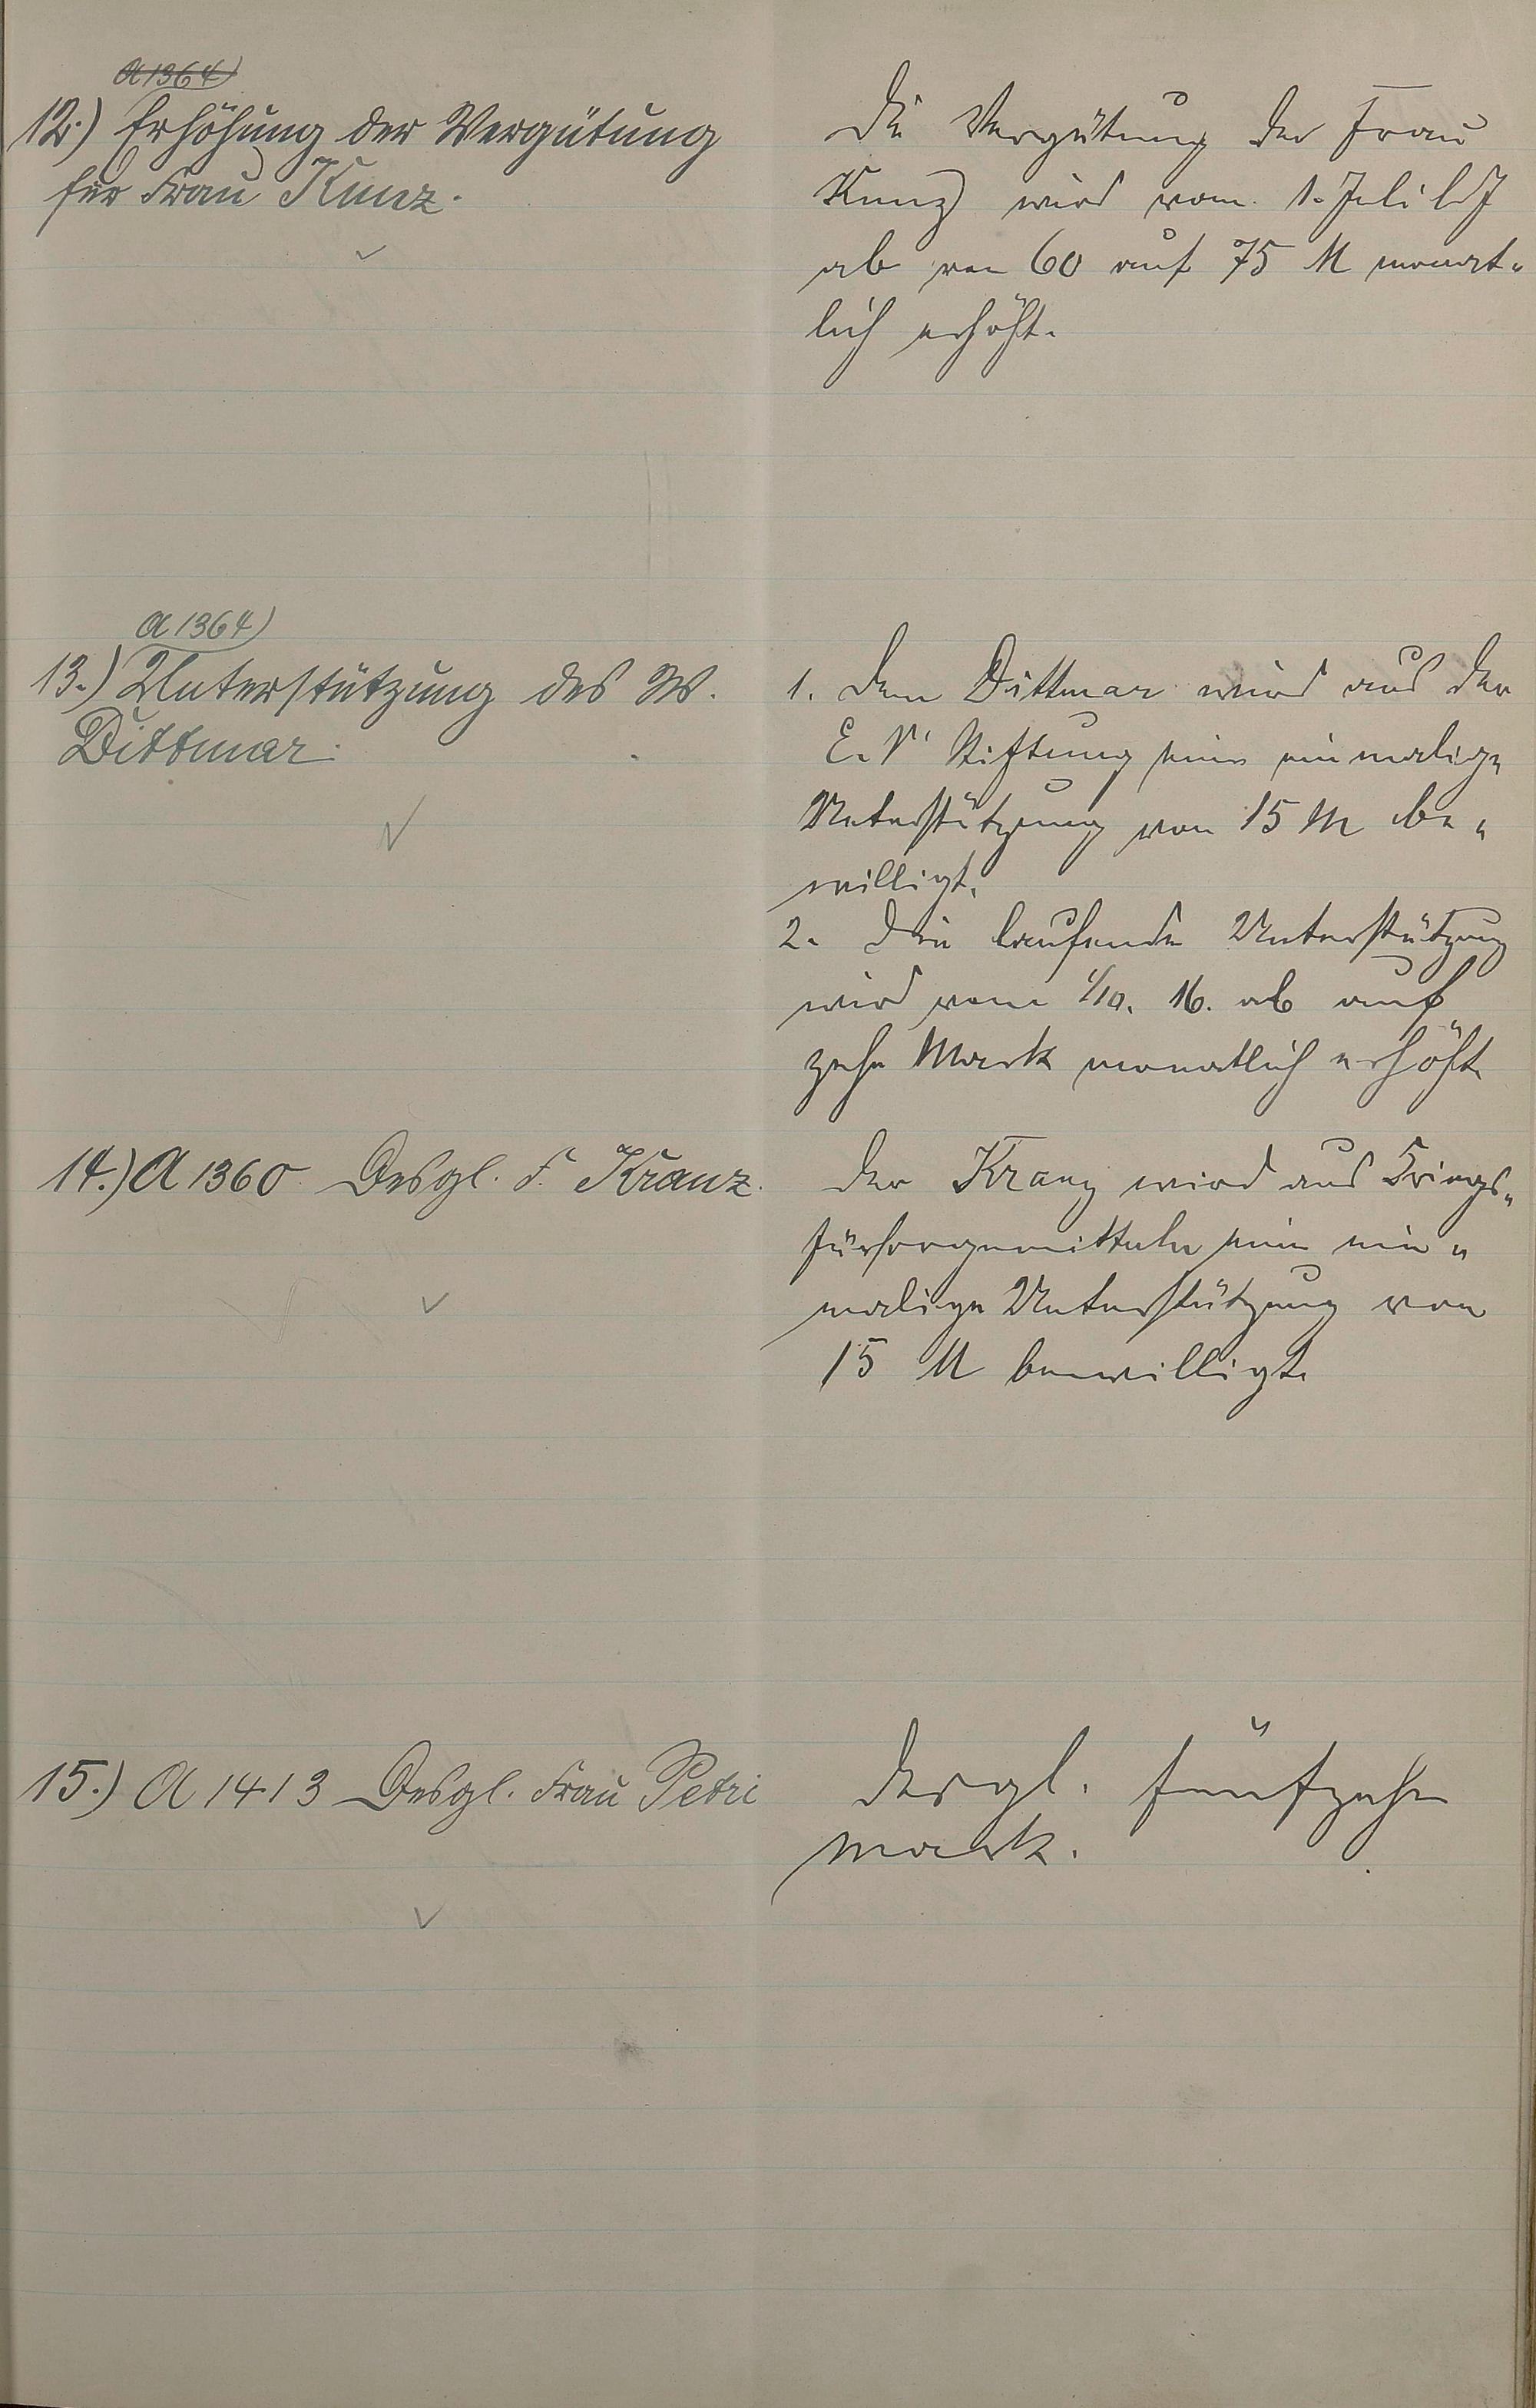 A 1364)
12.) Erhöhung der Vergütung
für Frau Kunz.
Die Vergütung der Frau
Kunz wird vom 1. Juli lJ
ab von 60 auf 75 M monat-
lich erhöht.
A 1364)
13.) Unterstützung des W.
Dittmar.
1. Dem Dittmar wird aus der
E. V. Stiftung eine einmalige
Unterstützung von 15 M be-
willigt.
2. Die laufende Unterstützung
wird vom 1/10. 16. ab auf
zehn Mark monatlich erhöht.
14.) A 1360 Desgl. F. Kranz.
Der Kranz wird aus Kriegs-
fürsorgemitteln eine ein-
malige Unterstützung von
15 M bewilligt.
15.) A 1413 Desgl. Frau Petri
Desgl. fünfzehn
Mark.